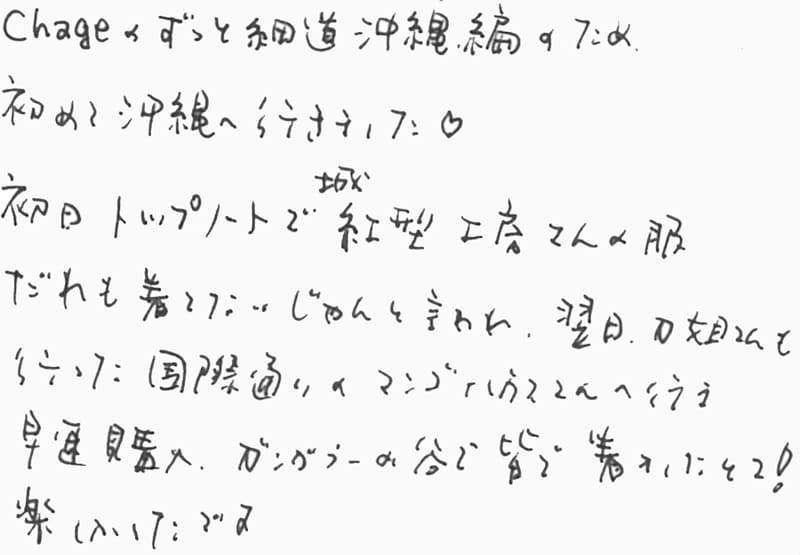 Chageのずっと細道 沖縄編のため.
初めて沖縄へ行きました♡
城
初日 トップノートで 紅型 工房さんの服
だれも着てな…じゃんと言われ、翌日、
行った国際通りのマンゴハウスさんへ行き
早速購入、ガンガラーの谷で皆で着ましたそろ!
楽しかったです